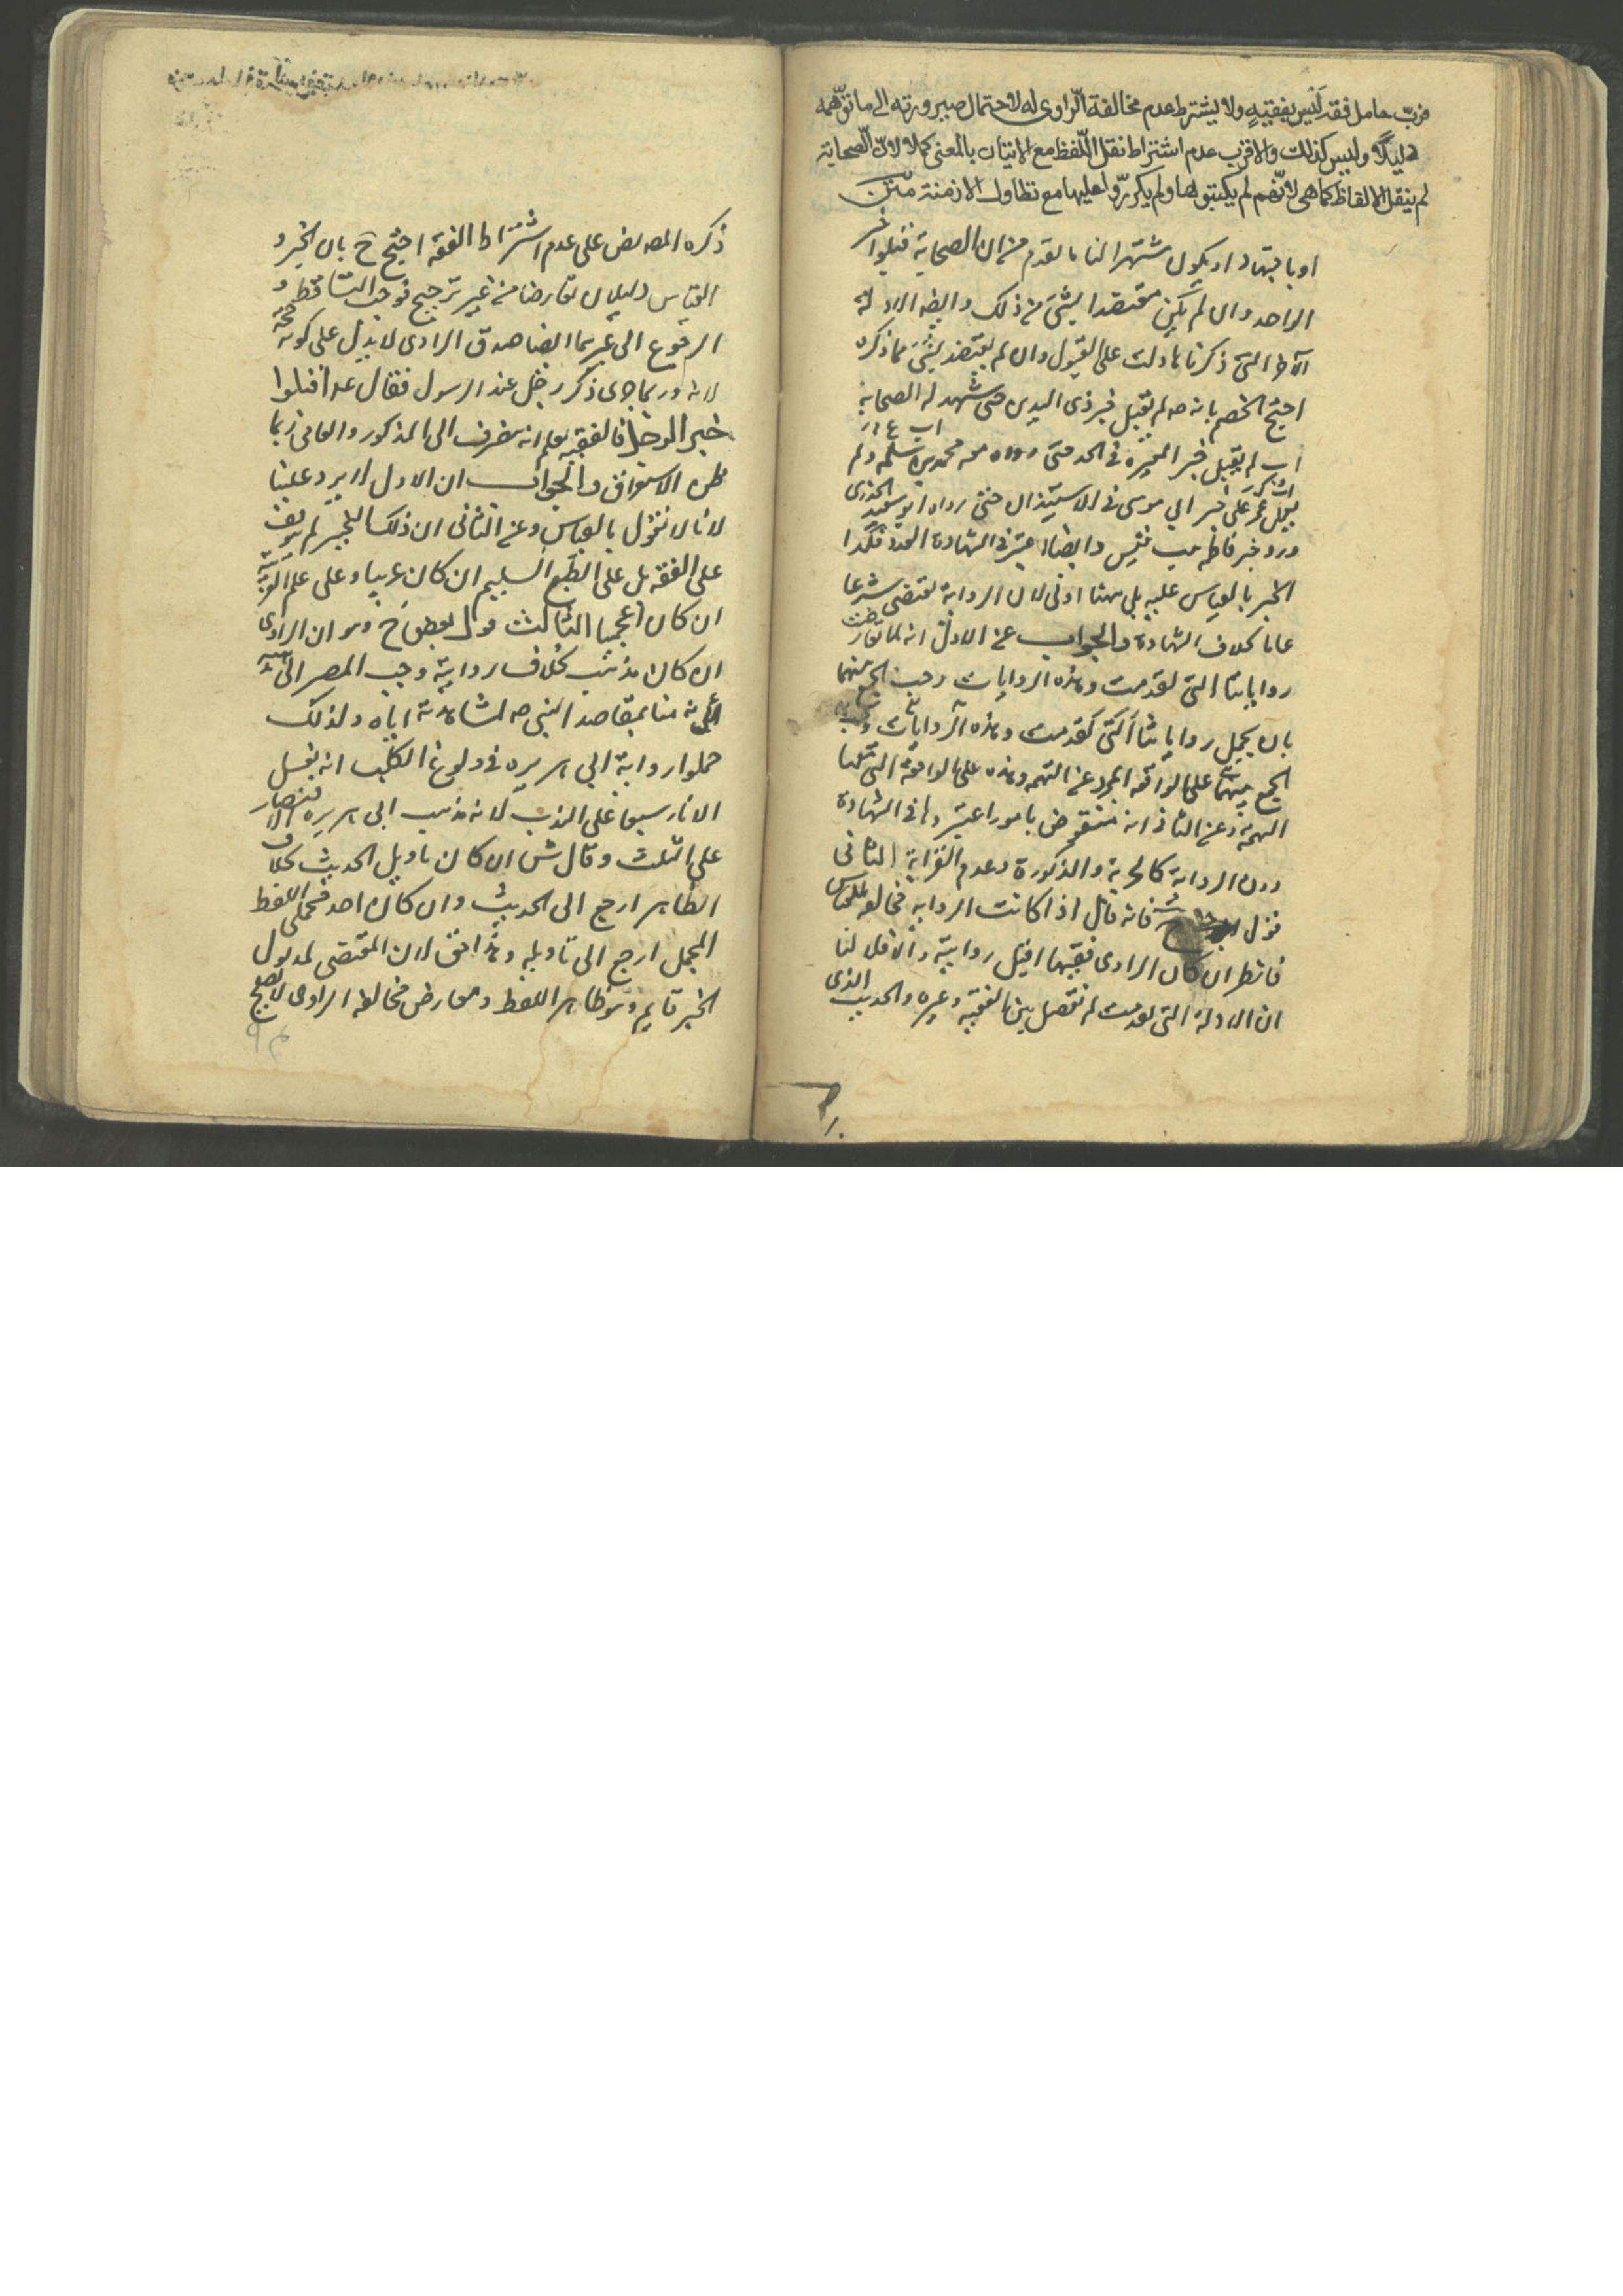 فربّ حامل فقه ليس بفقيه ولا يشترط عدم مخالفة الراوى له لاحتمال صيرورته الى ما توهّمه
دليلًا وليس كذلك والاقرب عدم اشتراط نقل اللّفظ مع الاتيان بالمعنى كملا لانّ الصحابة
لم ينقل الالفاظ كما هى لانّهم لم يكتبوها ولم يكرروا عليها مع تطاول الازمنة متن
او باجتهاد او يكون مشتهرا لنا ما تقدم من ان الصحابة قبلوا خبر
الواحد وان لم يكن معتضدا بشئ من ذلك وايضا الادلة
التى ذكرناها دلت على القبول وان لم يعتضد بشئ مما ذكره
احتج الخصم بانه صه لم يقبل خبر ذى اليدين حتى شهد له الصحابة
لم يقبل خبر المغيرة فى الجد حتى رواه معه محمد بن سلمه ولم
يقبل عمر خبر ابي موسى فى الاستيذان حتى رواه ابو سعيد الخدرى
ورد خبر فاطمه بنت قيس وايضا اعتبر فى الشهادة العدد فكذا
الخبر بالقياس عليه بل هنا اولى لان الرواية تقتضى شرعا
عاما بخلاف الشهادة والجواب عن الاول انه لما تعارضت
رواياتنا التى تقدمت وهذه الروايات وجب الجمع بينهما
بان يحمل رواياتنا التى تقدمت وهذه الروايات
الجمع بينهما على الواقعه المجرد عن التهمه وهذه على الواقعة التى
التهمة وعن الثانى انه منقوض بامور اعتبروها فى الشهادة
دون الرواية كالحرية والذكورة وعدم القرابة الثانى
قول فانه قال اذا كانت الرواية مخالفه للقياس
فانظر ان كان الراوى فقيها اقبل روايته والا فلا لنا
ان الادلة التى تقدمت لم تفصل بين الفقيه وغيره والحديث الذى
ذكره المصه نص على عدم اشتراط الفقه احتج ح بان الخبر و
القياس دليلان تعارضا من غير ترجيح فوجب التساقط و
الرجوع الى غيرهما ايضا صدق الراوى لا يدل على كونه حجة
لانه ربما جرى ذكر رجل عند الرسول فقال عه اقبلوا
خبر الرجل فالفقيه يعلم انه ينصرف الى المذكور والعامى ربما
ظن الاستغراق والجواب ان الاول لا يرد علينا
لانا لا نقول بالقياس وعن الثانى ان ذلك التمييز لم يوقف
على الفقه بل على الطبع السليم ان كان عربيا وعلى علم العربية
ان كان اعجميا الثالث قول بعض ح وهو ان الراوى
ان كان مذهبه بخلاف روايته وجب المصير الى مذهبه
لانه منا بمقاصد النبى صه لمشاهدته اياه ولذلك
حملوا رواية ابي هريره فى ولوغ الكلب انه يغسل
الاناء سبعا على الندب لانه مذهب ابى هريره الاقتصار
على الثلث وقال ش ان كان تاويل الحديث بخلاف
الظاهر ارجع الى الحديث وان كان احد محملى اللفظ
المجمل ارجع الى تاويله وهذا حق لان المقتضى لمدلول
الخبر قايم وهو ظاهر اللفظ ومعارض مخالفه الراوى لا يصلح